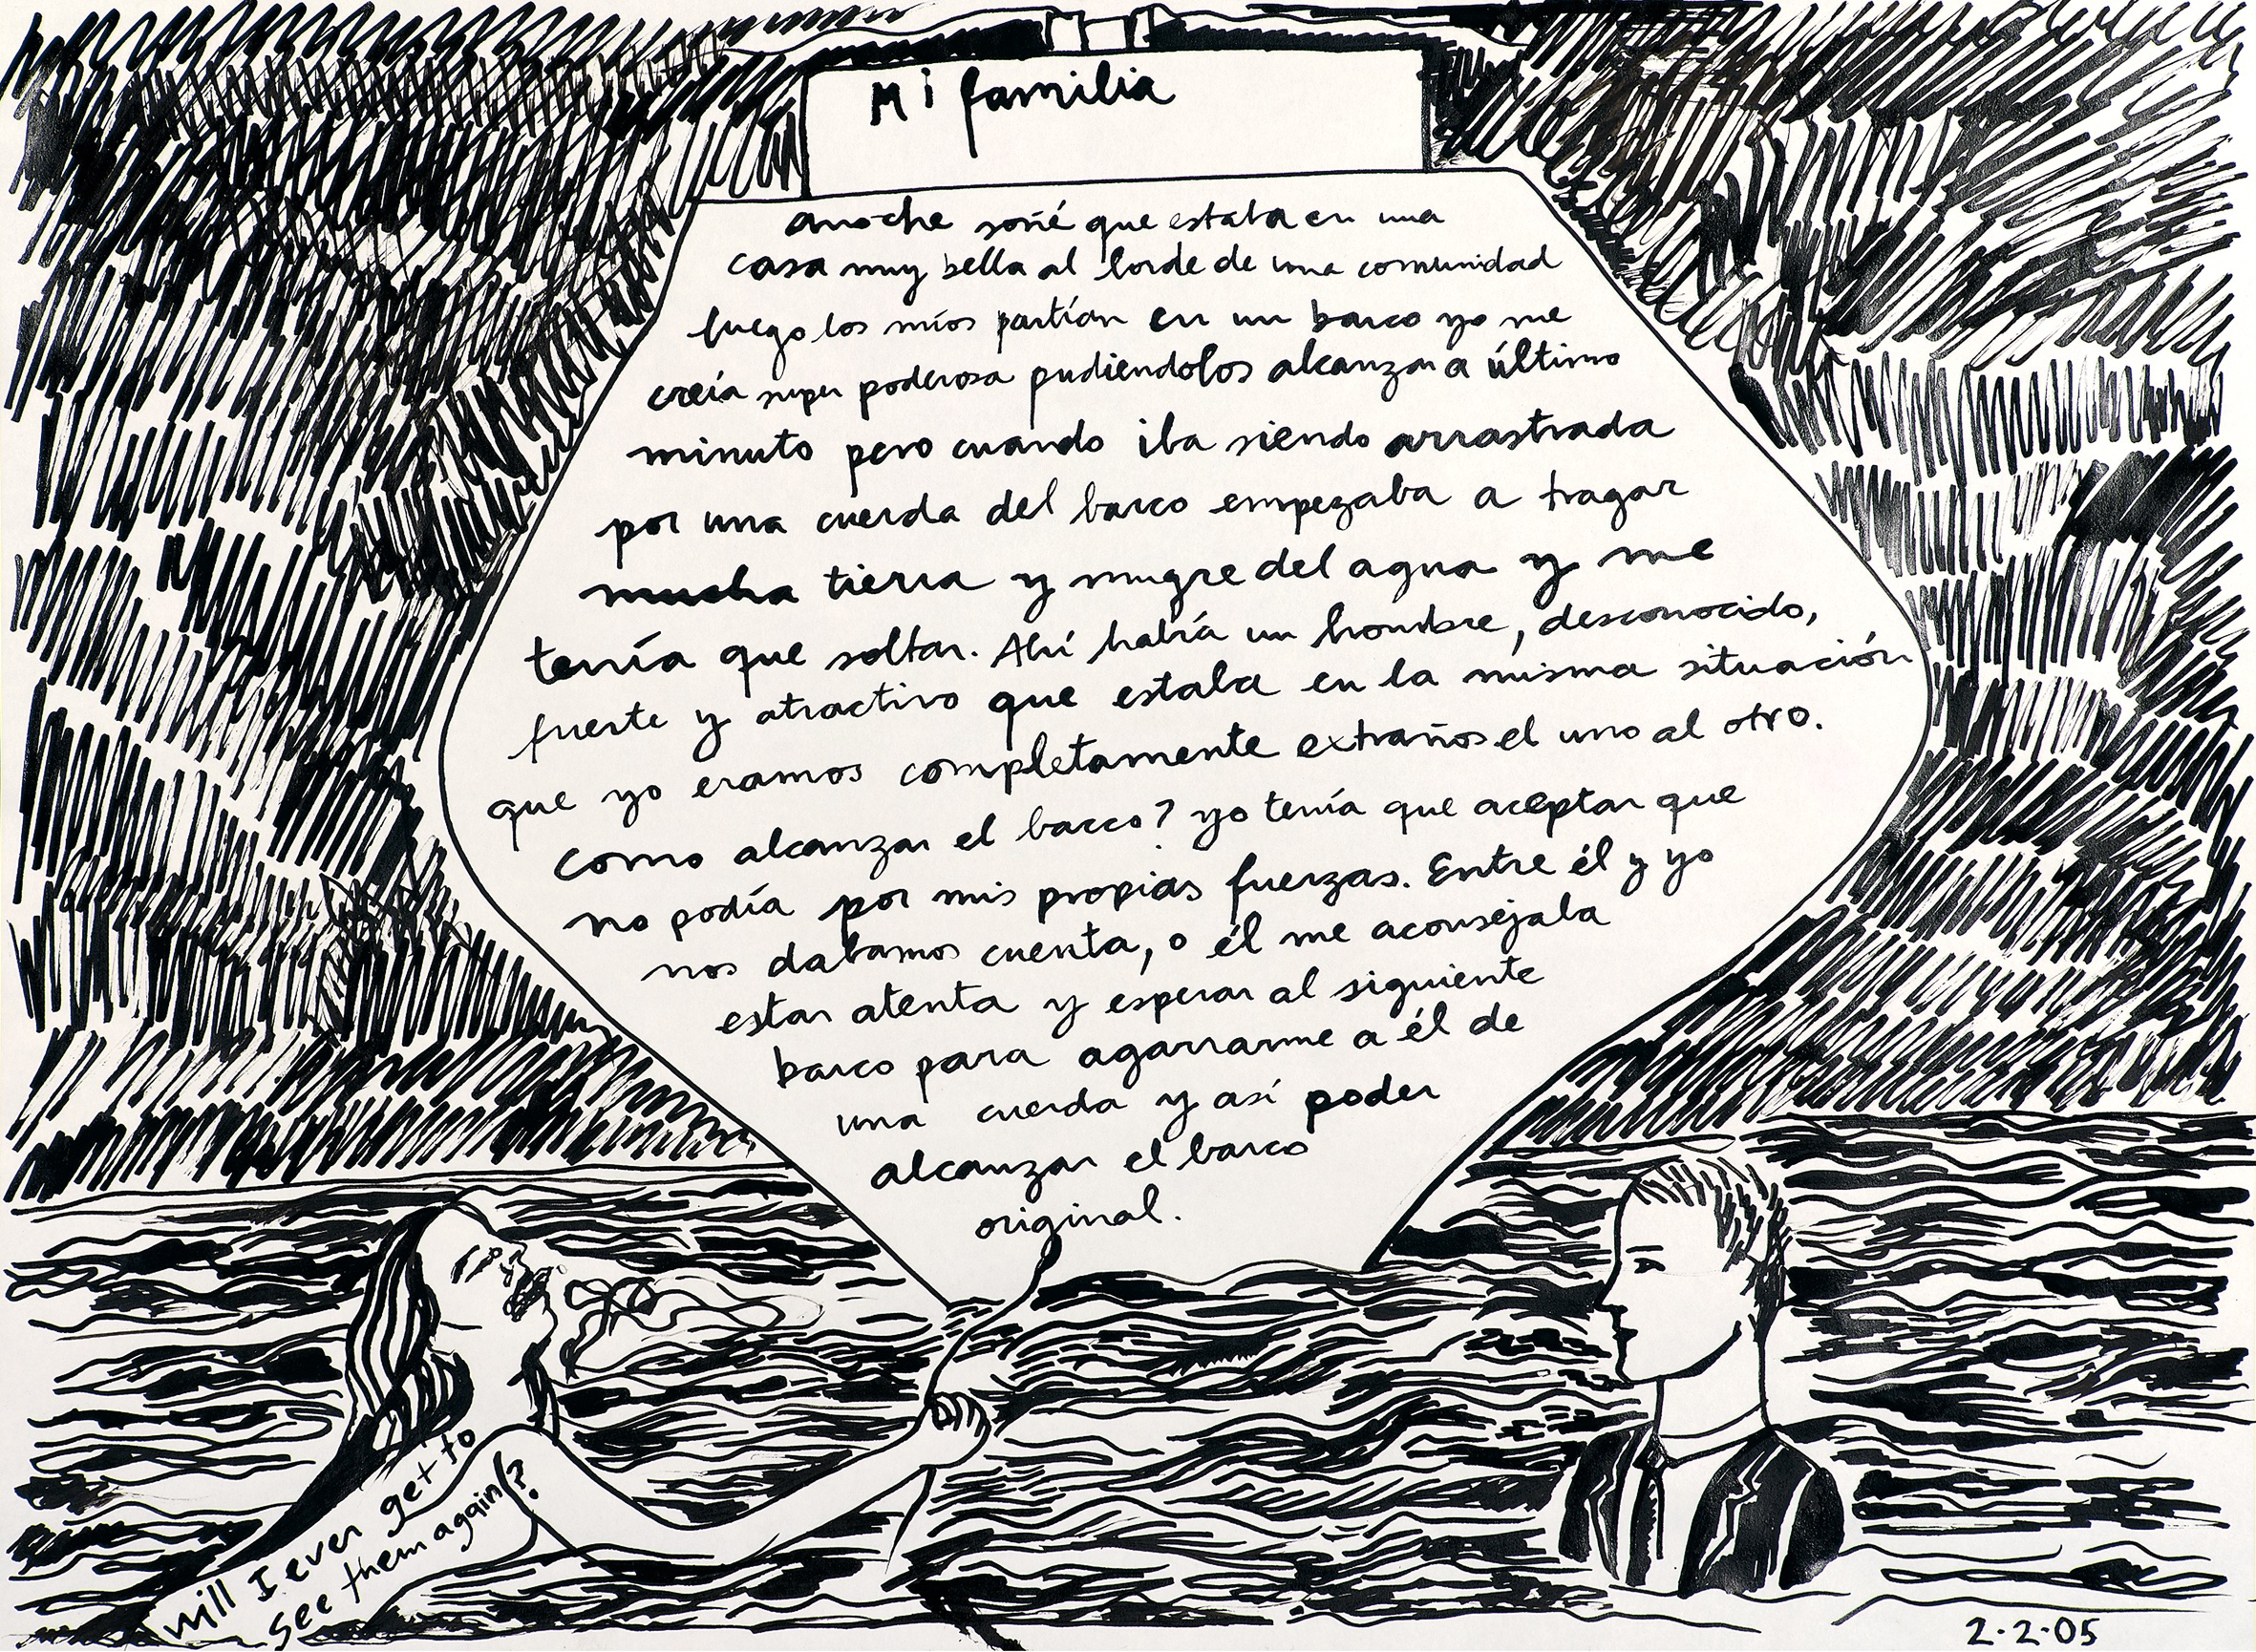 Mi familia
anoche soñé que estaba en una
casa muy bella al borde de una comunidad
luego los míos partían en un barco yo me
creía super poderosa pudiendolos alcanzar a último
minuto pero cuando iba siendo arrastrada
por una cuerda del barco empezaba a tragar
mucha tierra y mugre del agua y me
tenía que soltar. Ahí había un hombre, desconocido,
fuerte y atractivo que estaba en la misma situación
que yo eramos completamente extraños el uno al otro.
como alcanzar el barco? yo tenía que aceptar que
no podía por mis propias fuerzas. Entre él y yo
nos dabamos cuenta, o él me aconsejaba
estar atenta y esperar al siguiente
barco para agarrarme a él de
una cuerda y así poder
alcanzar el barco
original.
will I ever get to
see them again?
2.2.05